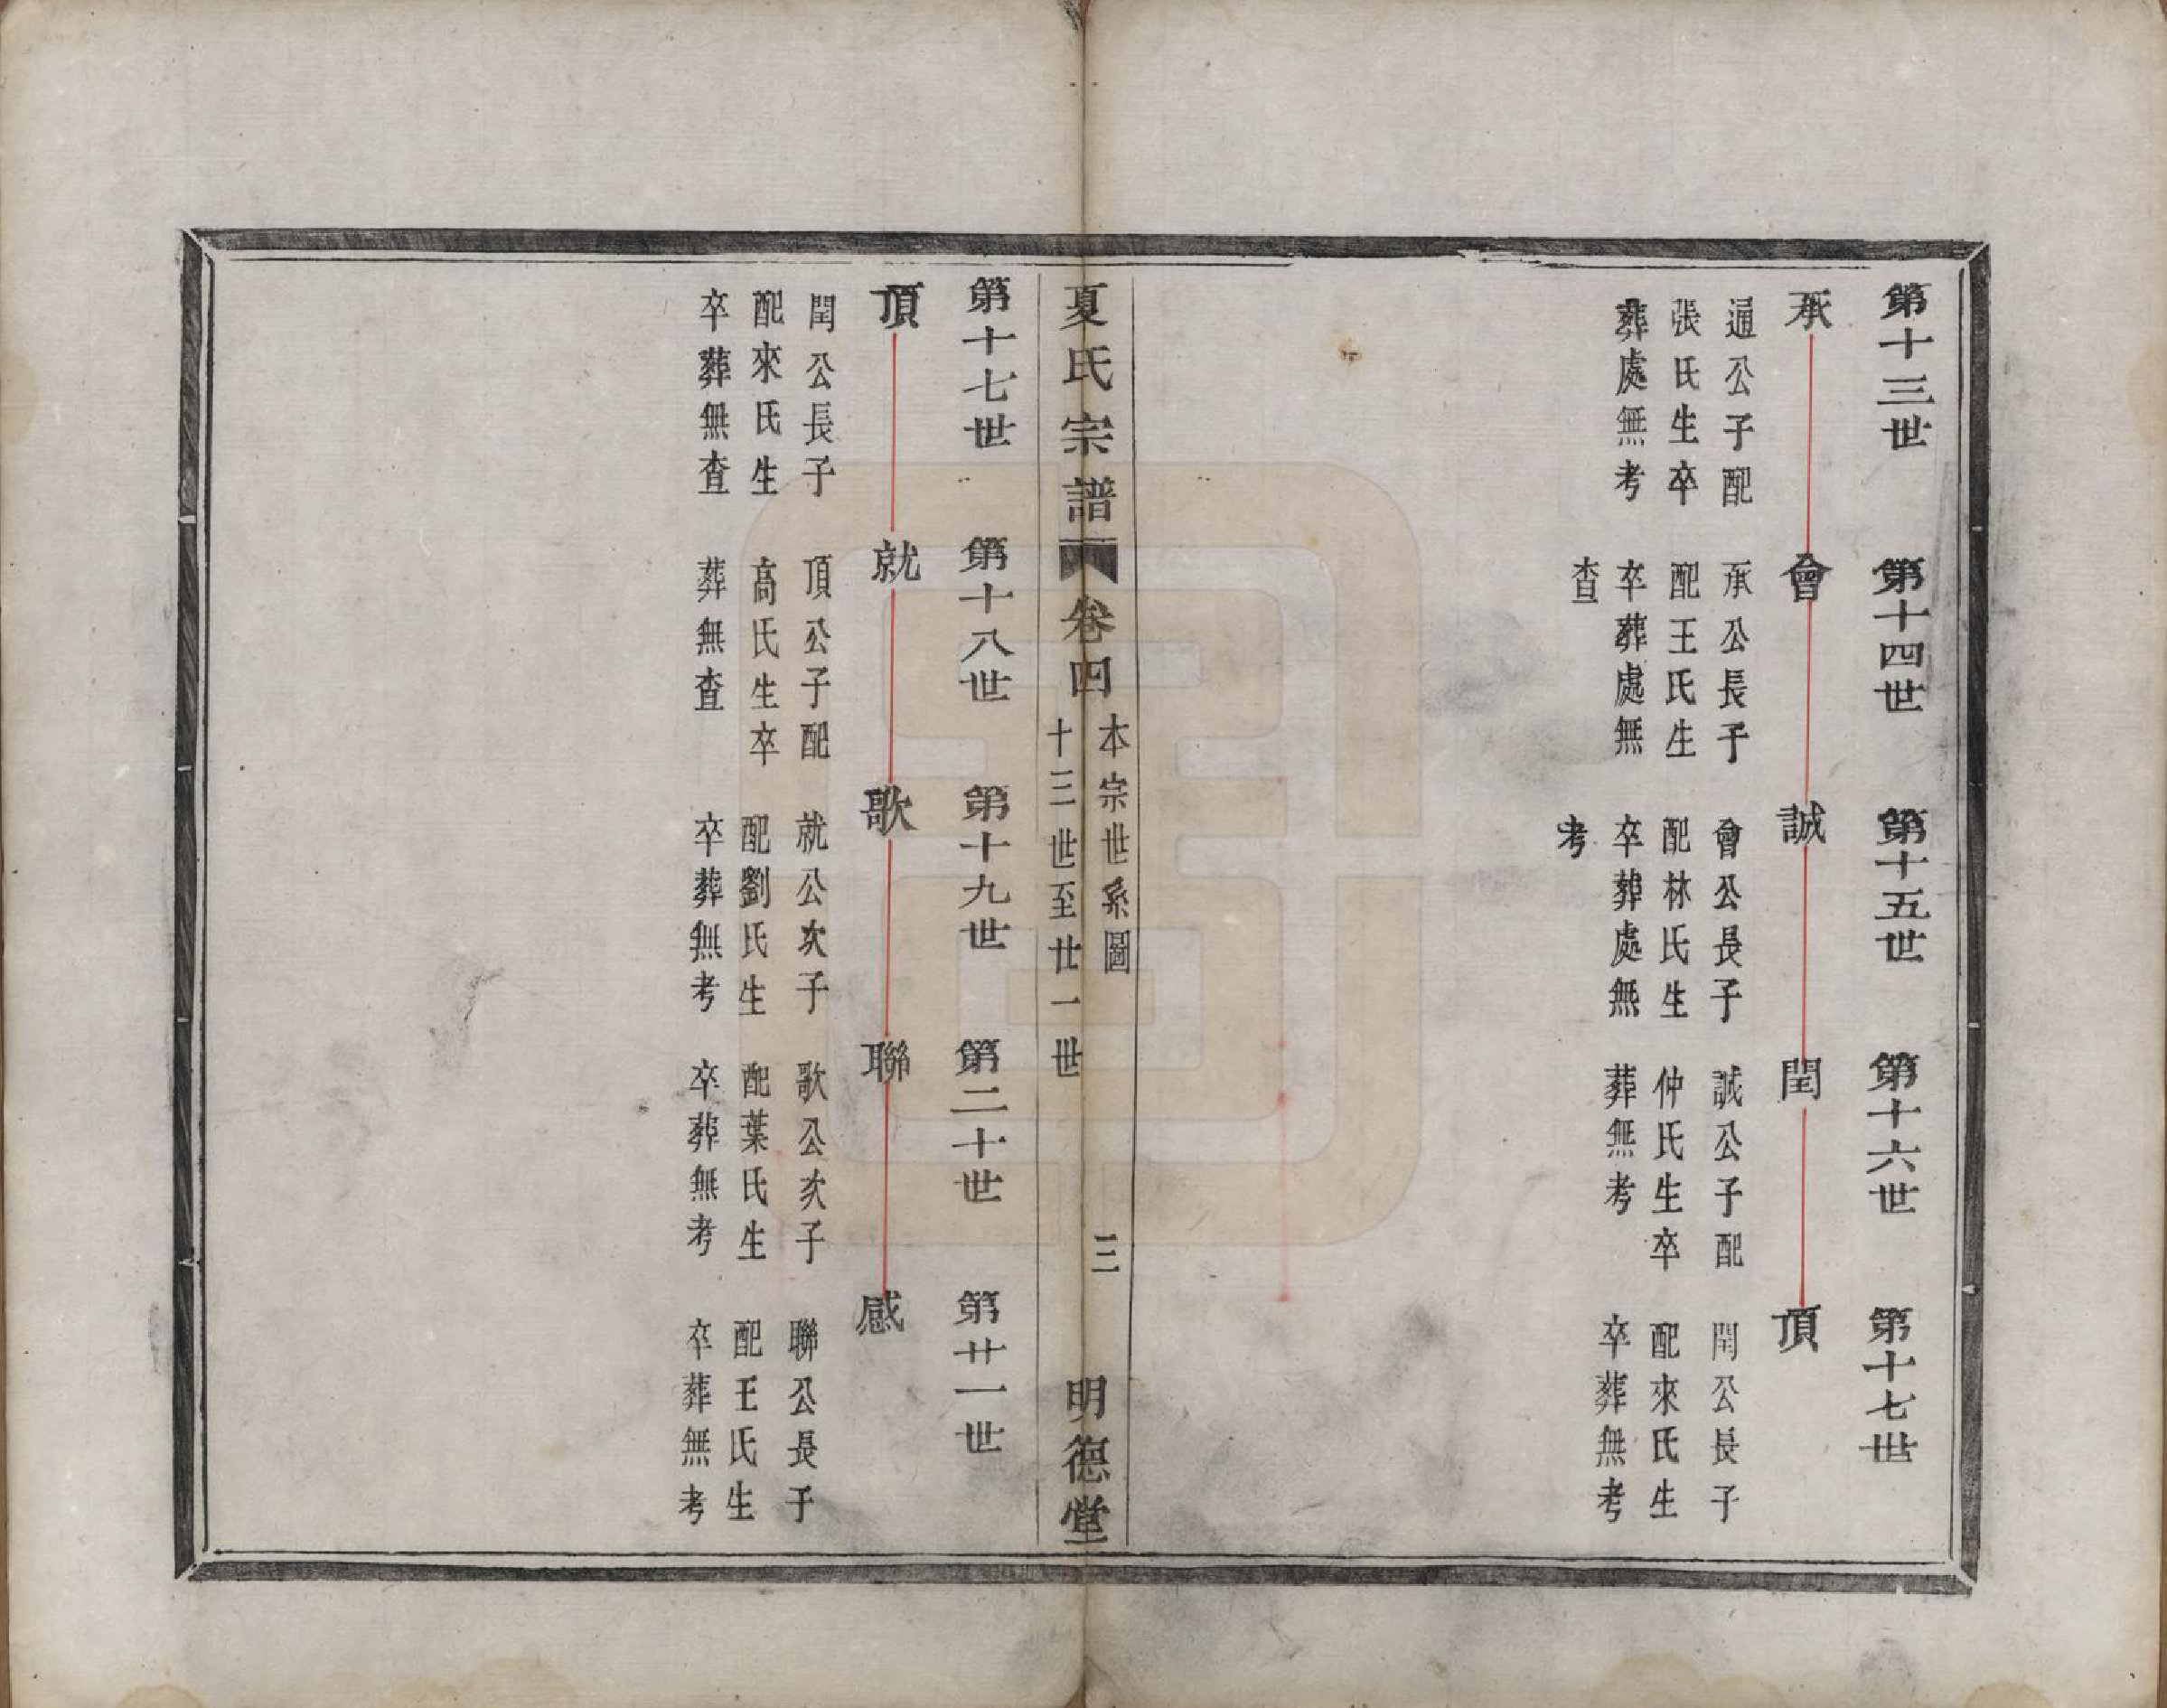 第十三世
承
通公子配
張氏生卒
葬處無考
第十四世
會
承公長子
配王氏生
卒葬處無
查
第十五世
誠
會公長子
配林氏生
卒葬處無
考
第十六世
閏
誠公子配
仲氏生卒
葬無考
第十七世
頂
閏公長子
配來氏生
卒葬無考
夏氏宗譜
卷四
本宗世系圖
十三世至廿一世
三
明德堂
第十七世
頂
閏公長子
配來氏生
卒葬無查
第十八世
就
頂公子配
高氏生卒
葬無查
第十九世
歌
就公次子
配劉氏生
卒葬無考
第二十世
聯
歌公次子
配葉氏生
卒葬無考
第廿一世
感
聯公長子
配王氏生
卒葬無考